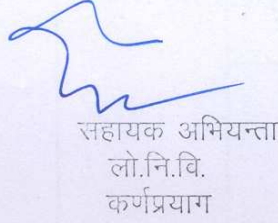 सहायक अभियन्ता
लो.नि.वि.
कर्णप्रयाग